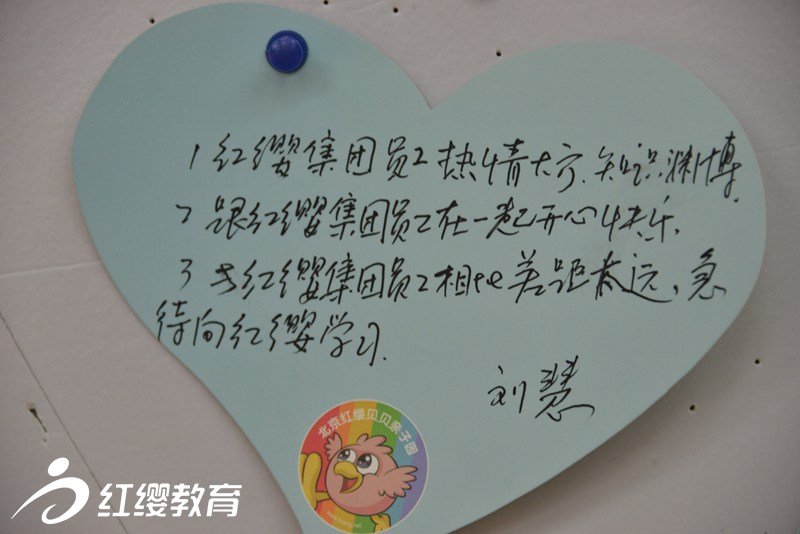 1 红缨集团员工热情大方、知识渊博.
2 跟红缨集团员工在一起开心快乐.
3 与红缨集团员工相比差距太远、急
待向红缨学习.
刘慧
北京红缨贝贝亲子园
红缨教育